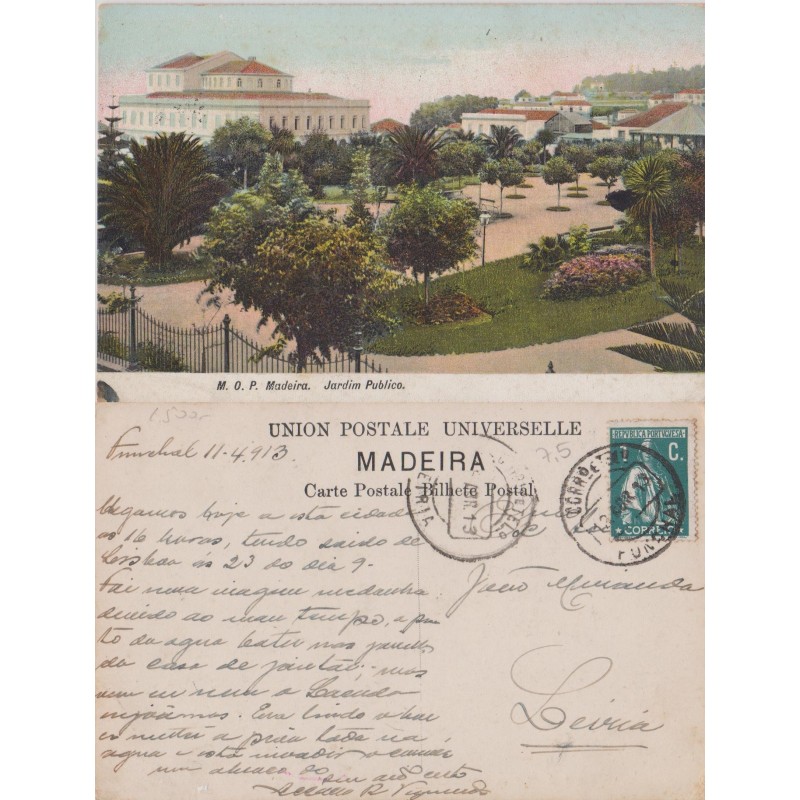 M. O. P. Madeira. Jardim Publico.
1500
UNION POSTALE UNIVERSELLE
MADEIRA
Carte Postale Bilhete Postal
7,5
REPUBLICA PORTUGUESA
1 C.
CORREIO
LEIRIA
Funchal 11-4-913
Chegamos hoje a esta cidade
as 16 horas, tendo saido de
Lisboa ás 23 do dia 9-
Foi uma viagem medonha
devido ao mau tempo, a pon
to da agua bater nas janellas
da casa de jantar; mas
nem eu nem o
enjoámos. Era lindo o ver
a prôa toda na
agua e esta invadir o
um abraço do seu
João Miranda
Leiria